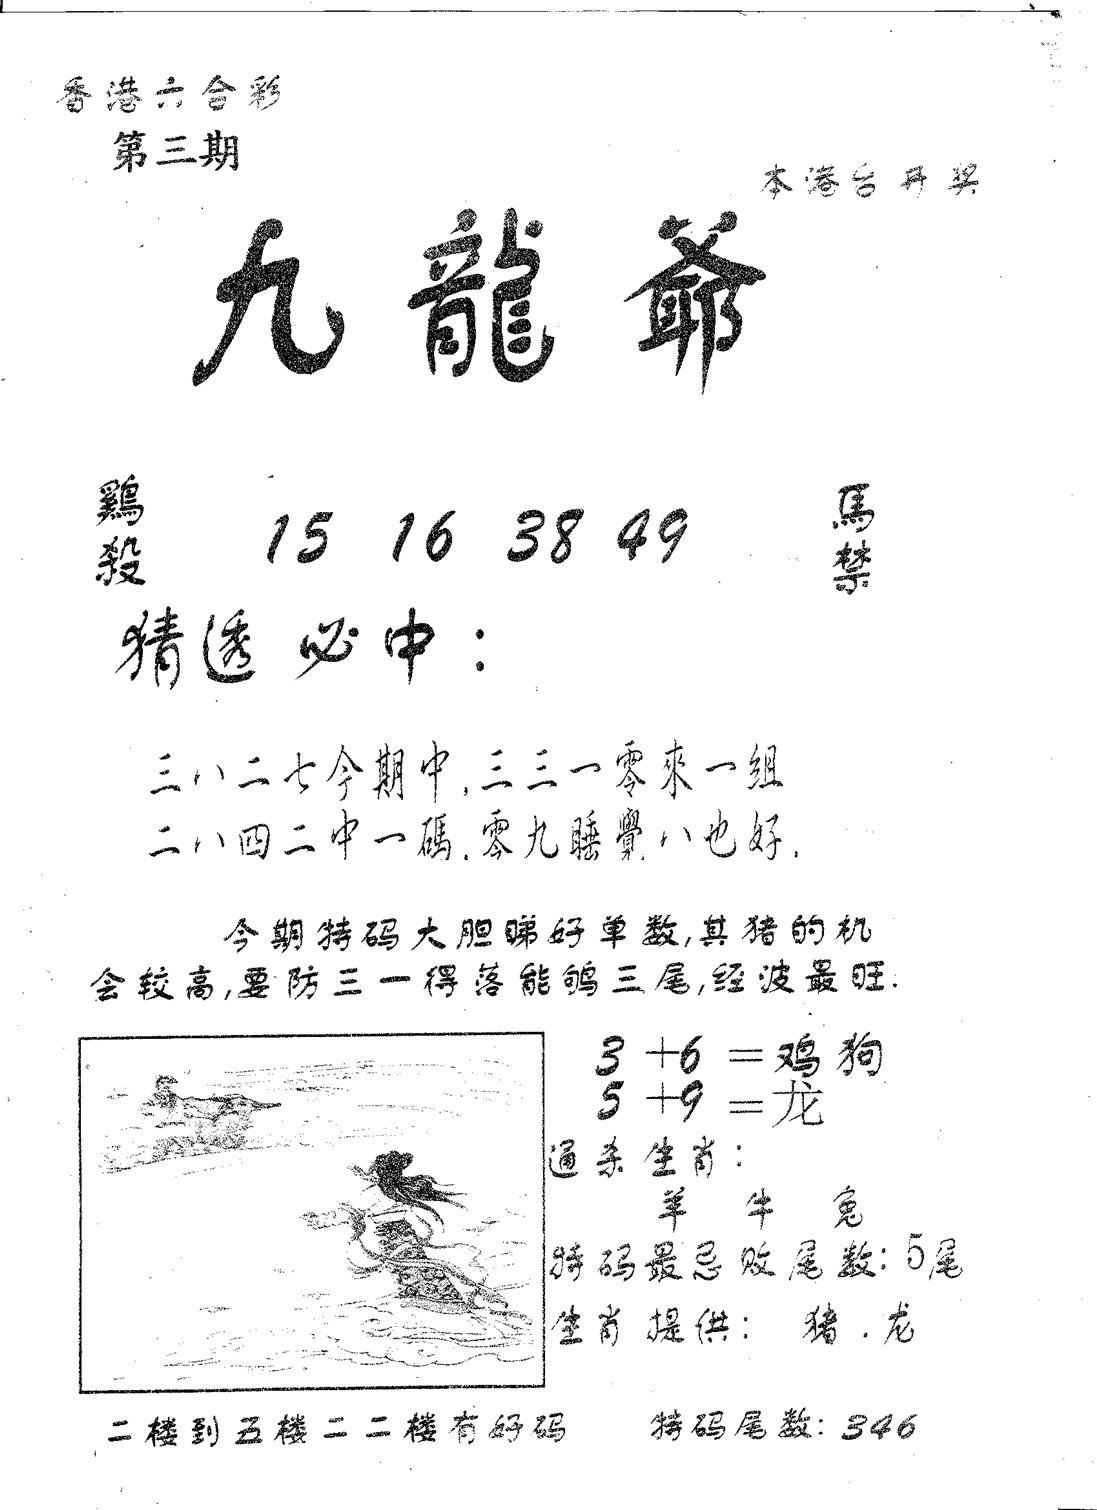 香港六合彩
第三期
本港台开奖
九龍爺
鷄殺
15 16 38 49
馬禁
猜透必中：
三八二七今期中，三三一零來一組
二八四二中一碼．零九睡覺八也好．
今期特码大胆睇好单数，其猪的机
会较高，要防三一得落能鸲三尾，经波最旺．
3+6=鸡狗
5+9=龙
通杀生肖：
羊 牛 兔
特码最忌败尾数：5尾
生肖提供： 猪．龙
二楼到五楼二二楼有好码 特码尾数：346